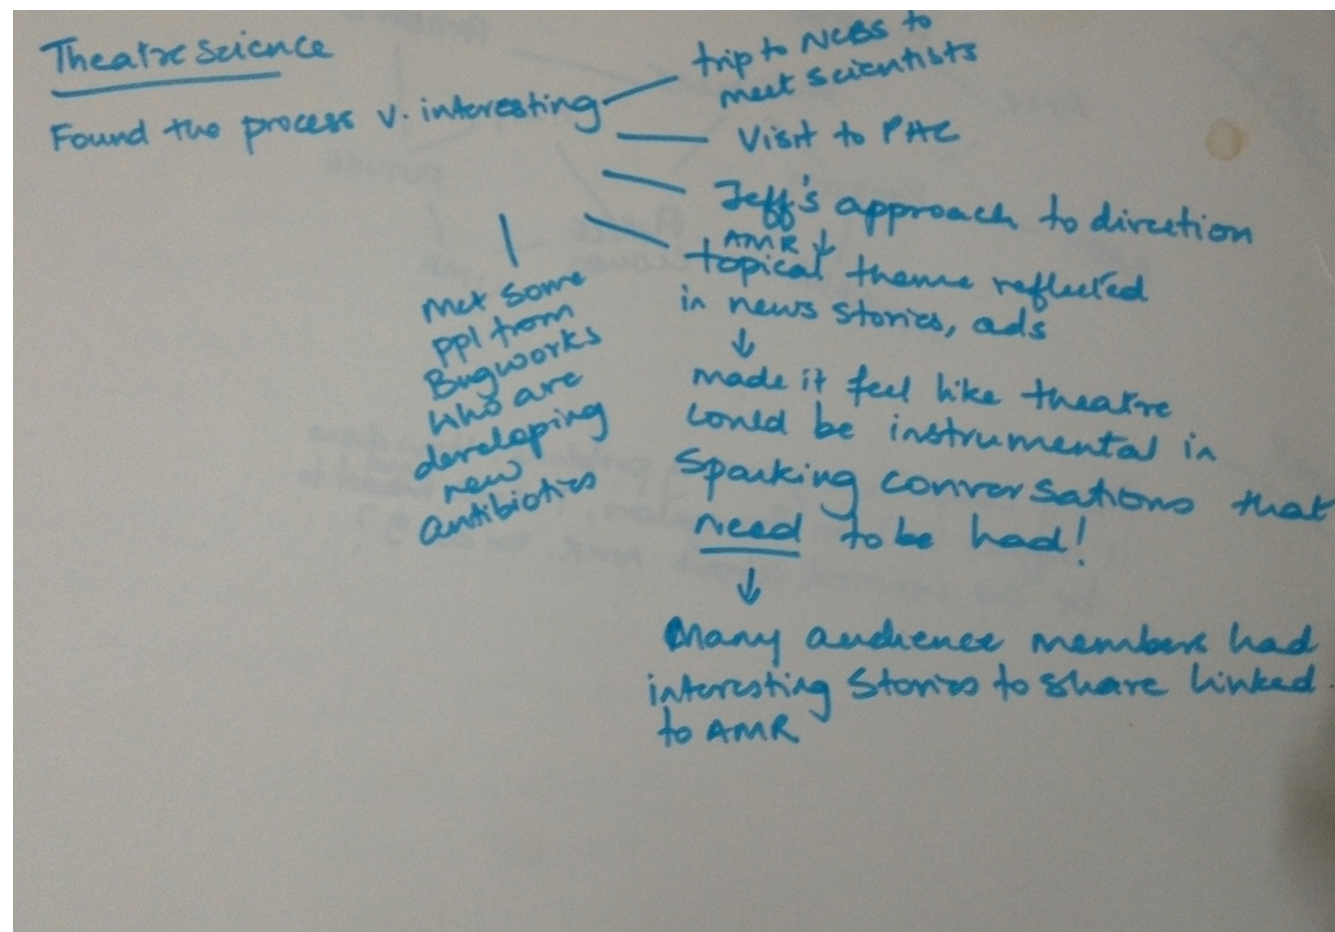 Theatre science
Found the process v. interesting
trip to NCBS to
meet scientists
Visit to PHC
Jeff's approach to direction
AMR ↓
topical theme reflected
in news stories, ads
↓
made it feel like theatre
could be instrumental in
sparking conversations that
need to be had!
↓
Many audience members had
interesting stories to share linked
to AMR
Met some
ppl from
Bugworks
who are
developing
new
antibiotics